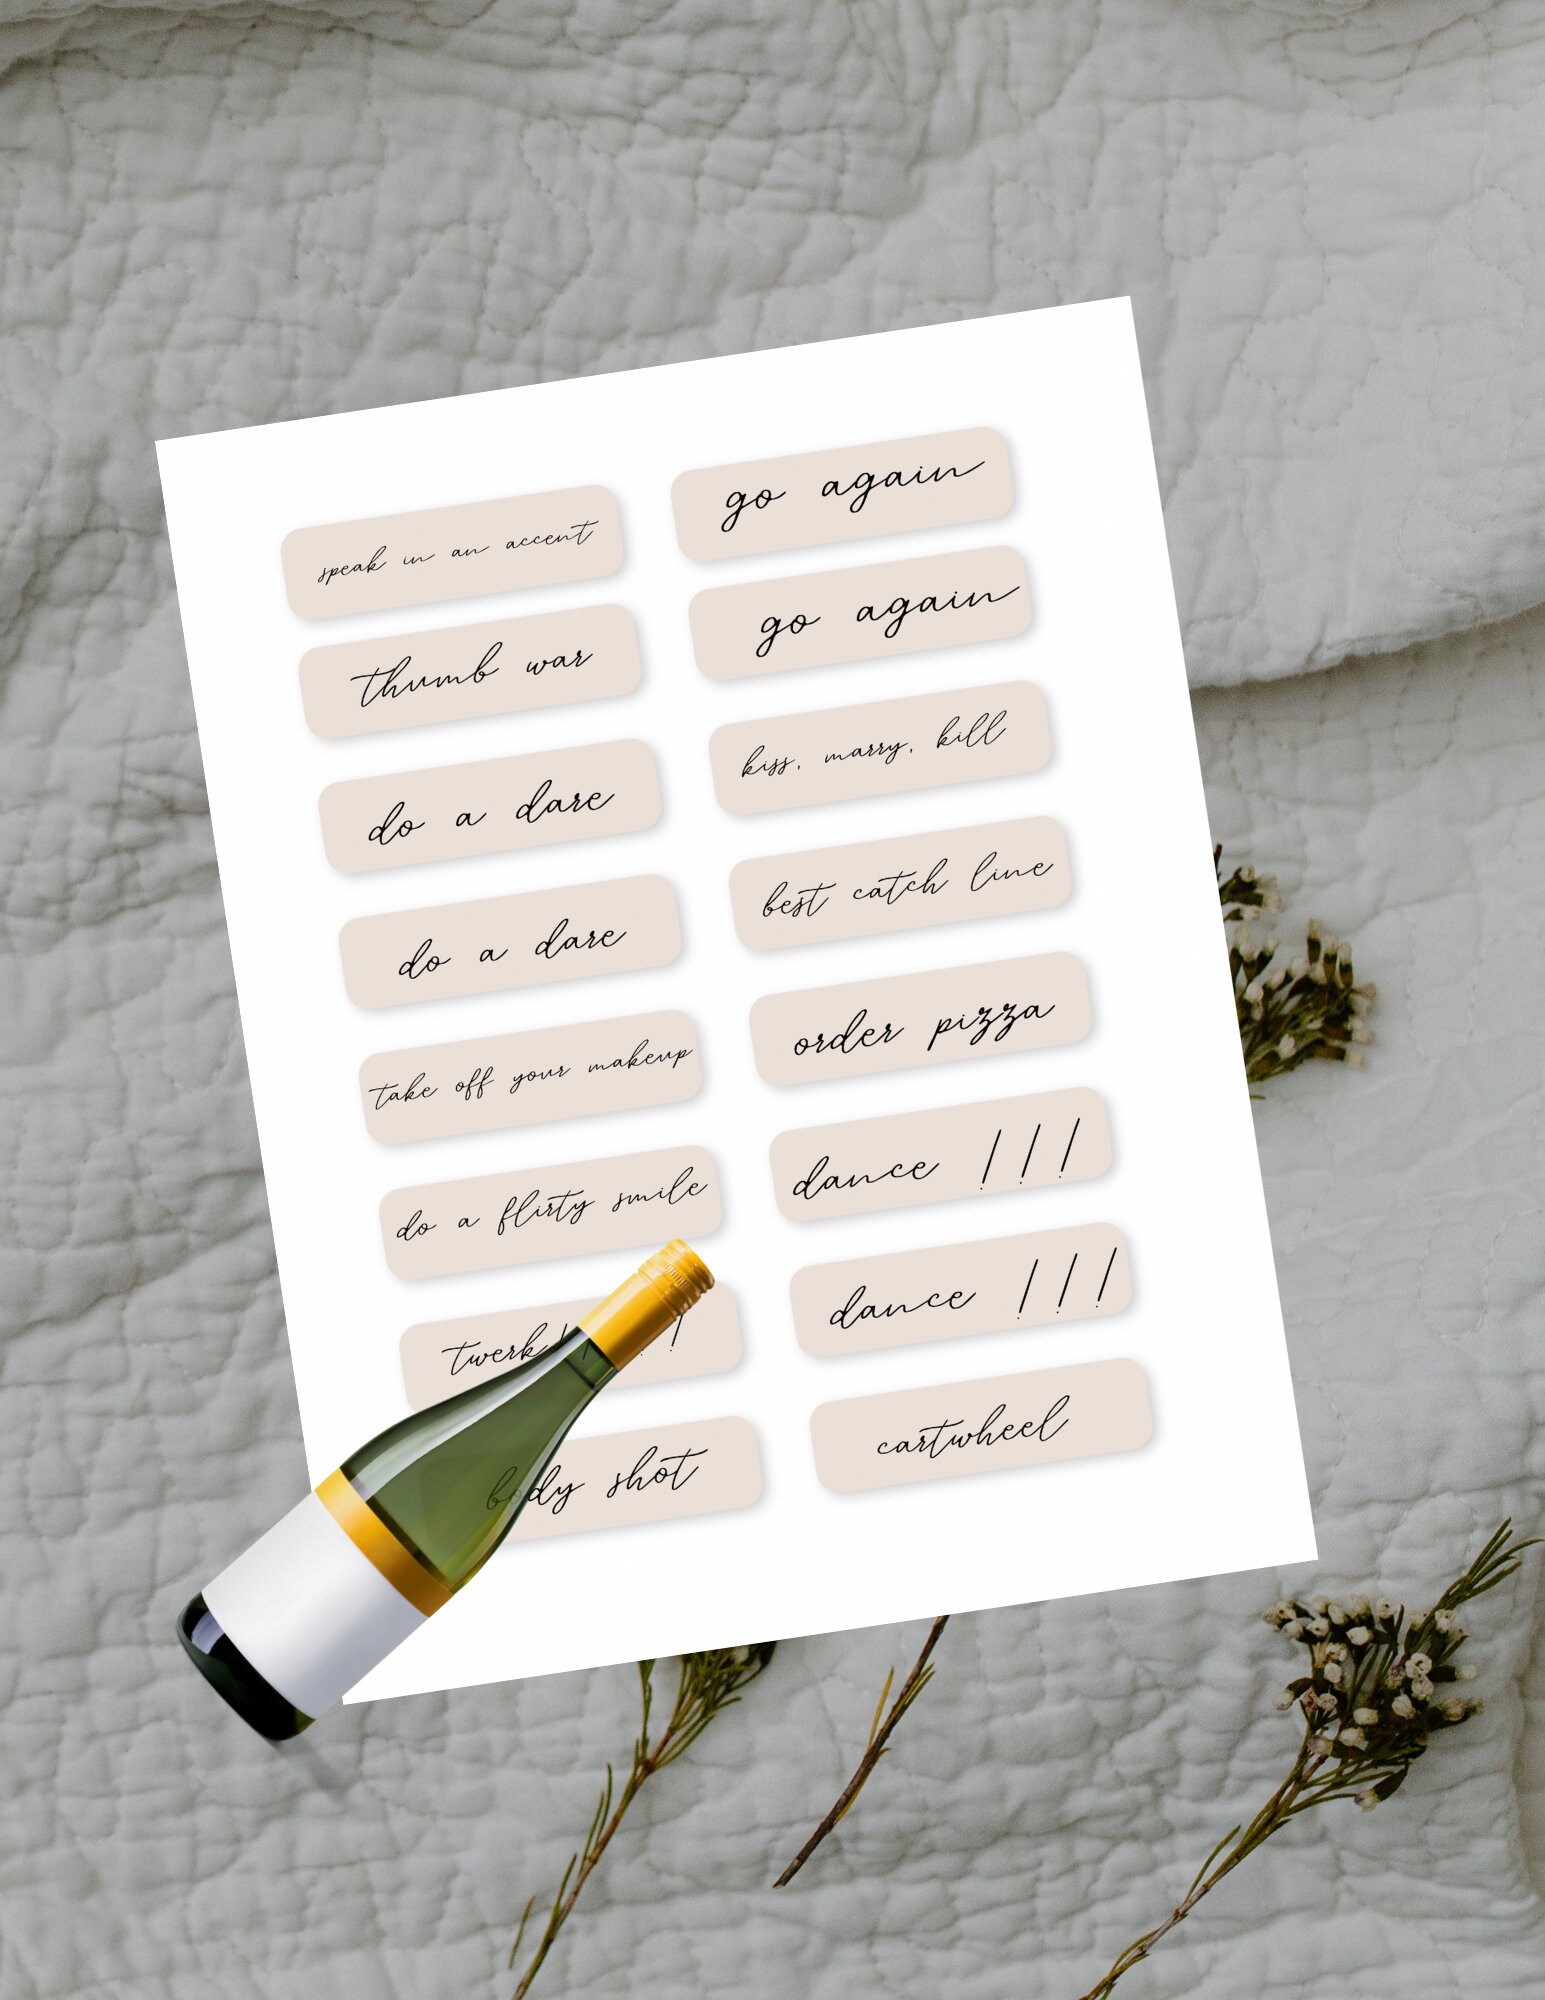 speak in an accent
thumb war
do a dare
do a dare
take off your makeup
do a flirty smile
twerk !!!!
body shot
go again
go again
kiss, marry, kill
best catch line
order pizza
dance !!!
dance !!!
cartwheel